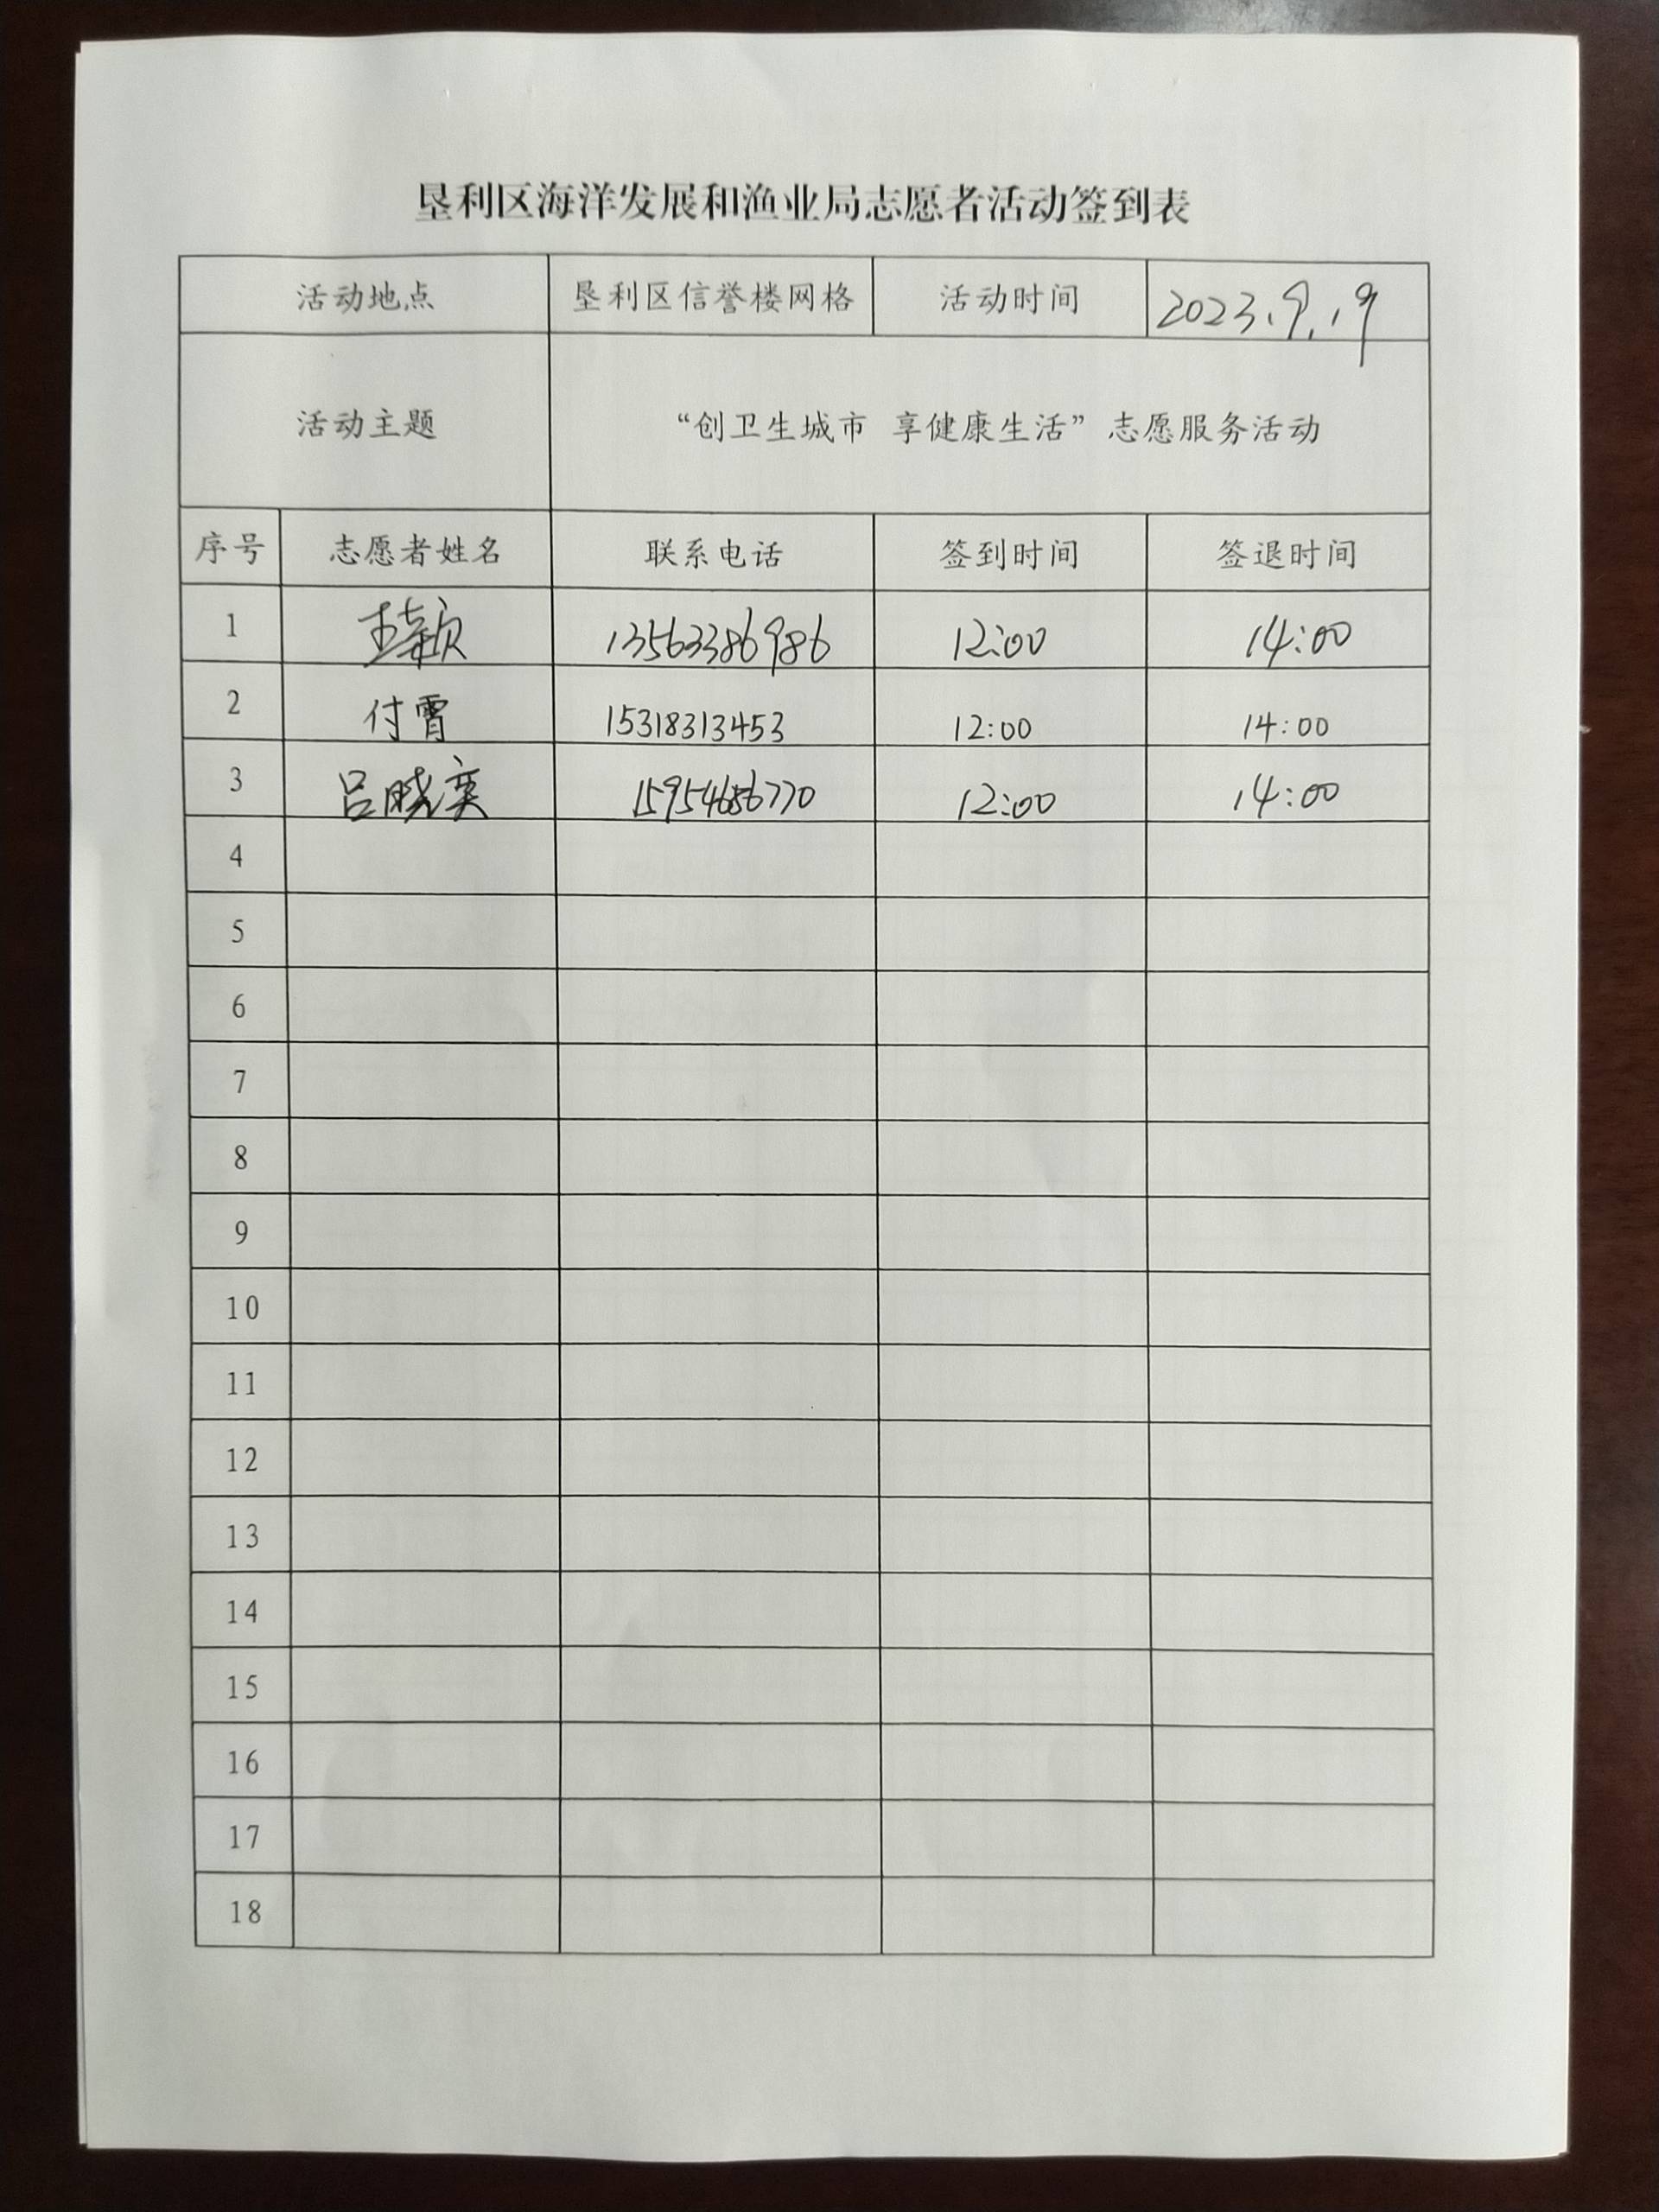 垦利区海洋发展和渔业局志愿者活动签到表
活动地点 垦利区信誉楼网格 活动时间 2023.9.19
活动主题 “创卫生城市 享健康生活”志愿服务活动
序号 志愿者姓名 联系电话 签到时间 签退时间
1 13563386986 12:00 14:00
2 付霄 15318313453 12:00 14:00
3 吕晓奕 15954656770 12:00 14:00
4
5
6
7
8
9
10
11
12
13
14
15
16
17
18